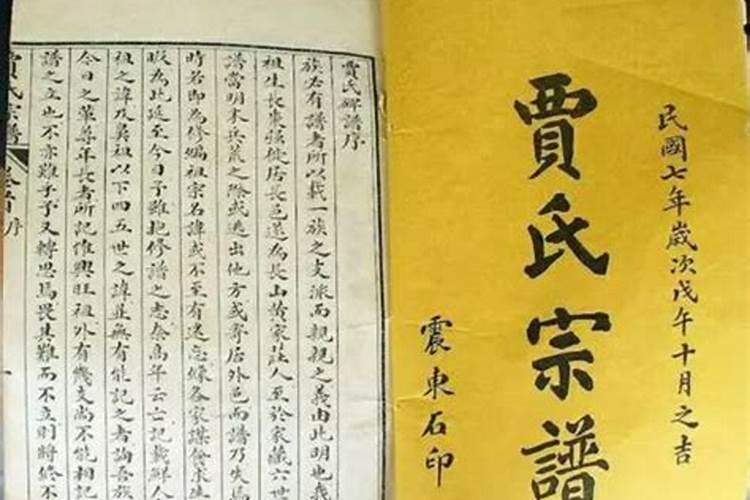 民國七年歲次戊午十月之吉
賈氏宗譜
震東石印
賈氏碑譜序
族必有譜者所以載一族之支派而親親之義由此明也義
祖生長棗強徙居長邑遂為長山黃家莊人至於家藏六世
譜當明末兵荒之際或逃出他方或寄居外邑而譜乃失焉
時若即為修編祖宗名諱或不至有遺忘緣各家謀食求生
暇為此延至今日予雖抱修譜之志奈高年云亡記載鮮人
祖之諱及異祖以下四五世之諱並無有能記之者詢吾族
今日之輩尊年長者所記惟興旺祖外有幾支尚不能相記
譜之立也不亦難乎予又轉思焉畏其難而不立則將終不
賈氏宗譜
序